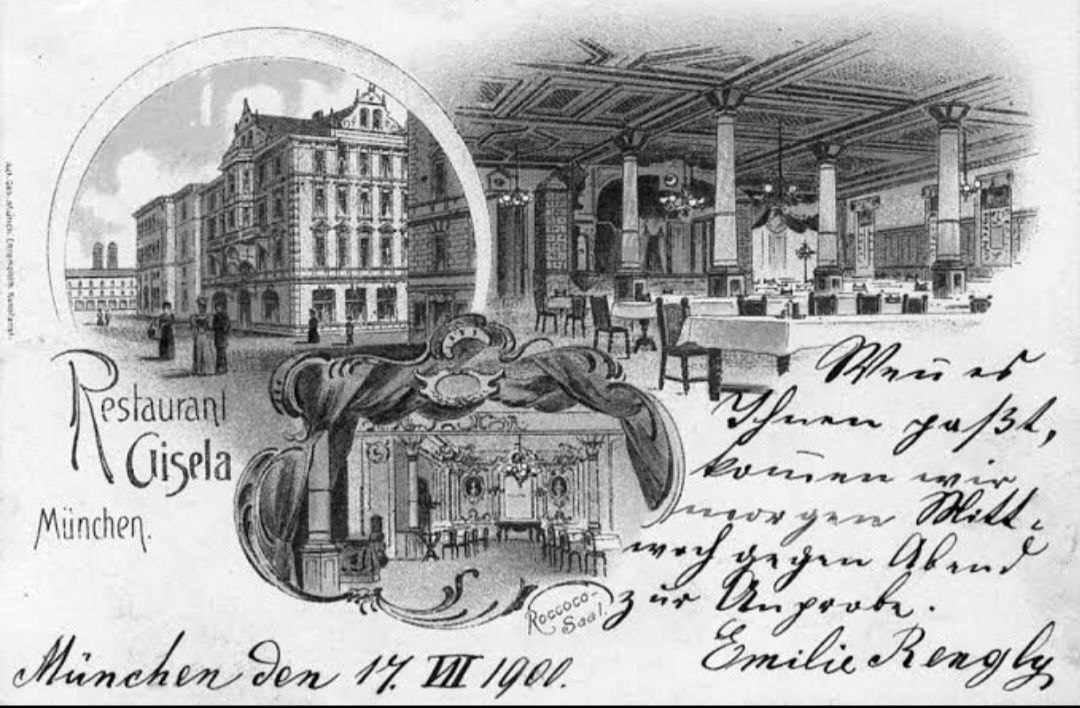 Restaurant
Gisela
München.
Roccoco-
Saal.
Wen̄ es
Ihnen paßt,
kom̄en wir
morgen Mitt-
woch gegen Abend
zur Anprobe.
Emilie Rengly
München den 17. VII 1900.